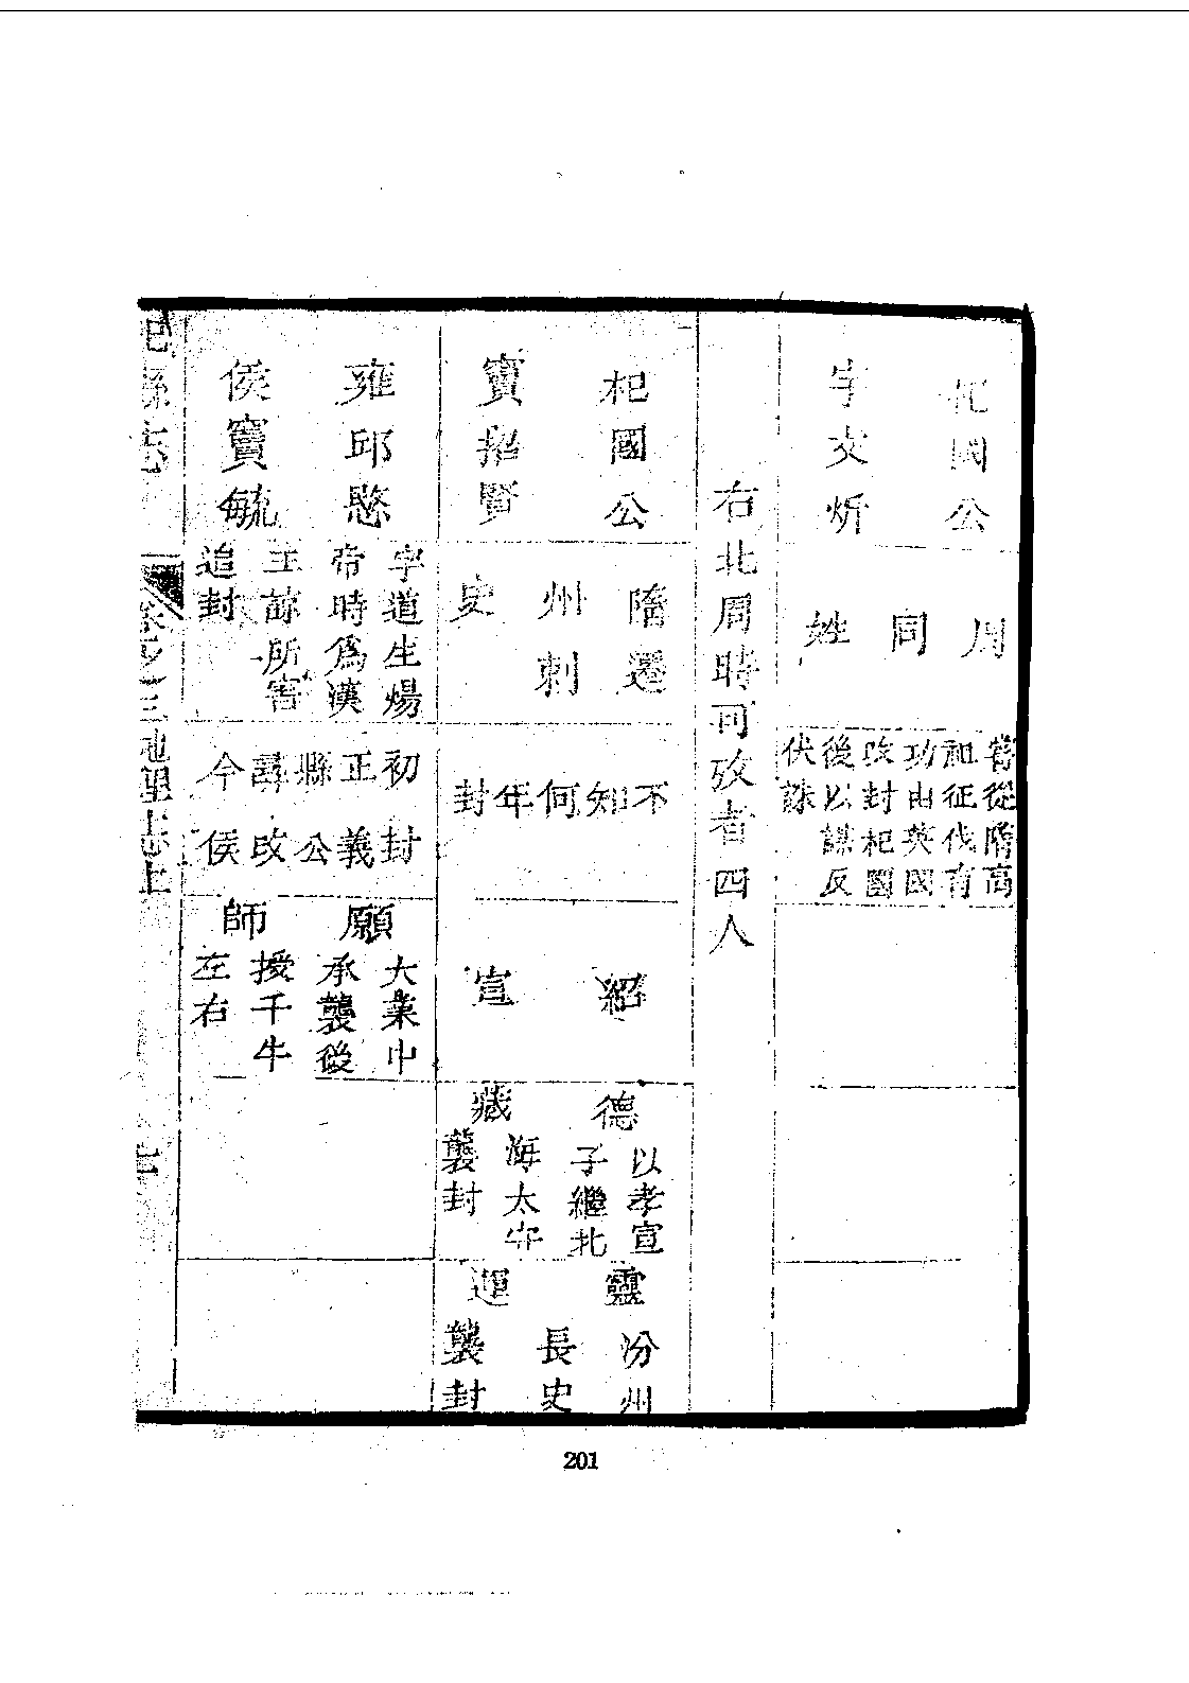 杞國公
宇文炘
周
同
姓
嘗從隋高
祖征伐有
功由英國
改封杞國
後以謀反
伏誅
右北周時可攷者四人
杞國公
竇招賢
隋遷
州刺
史
不知何年封
紹
宣
德
藏
以孝宣
子繼北
海太守
襲封
靈
運
汾州
長史
襲封
雍邱愍
侯竇毓
字道生煬
帝時為漢
王諒所害
追封
初封
正義
縣公
尋改
今侯
願
師
大業中
承襲後
授千牛
左右
杞縣志
卷之三地理志上
201